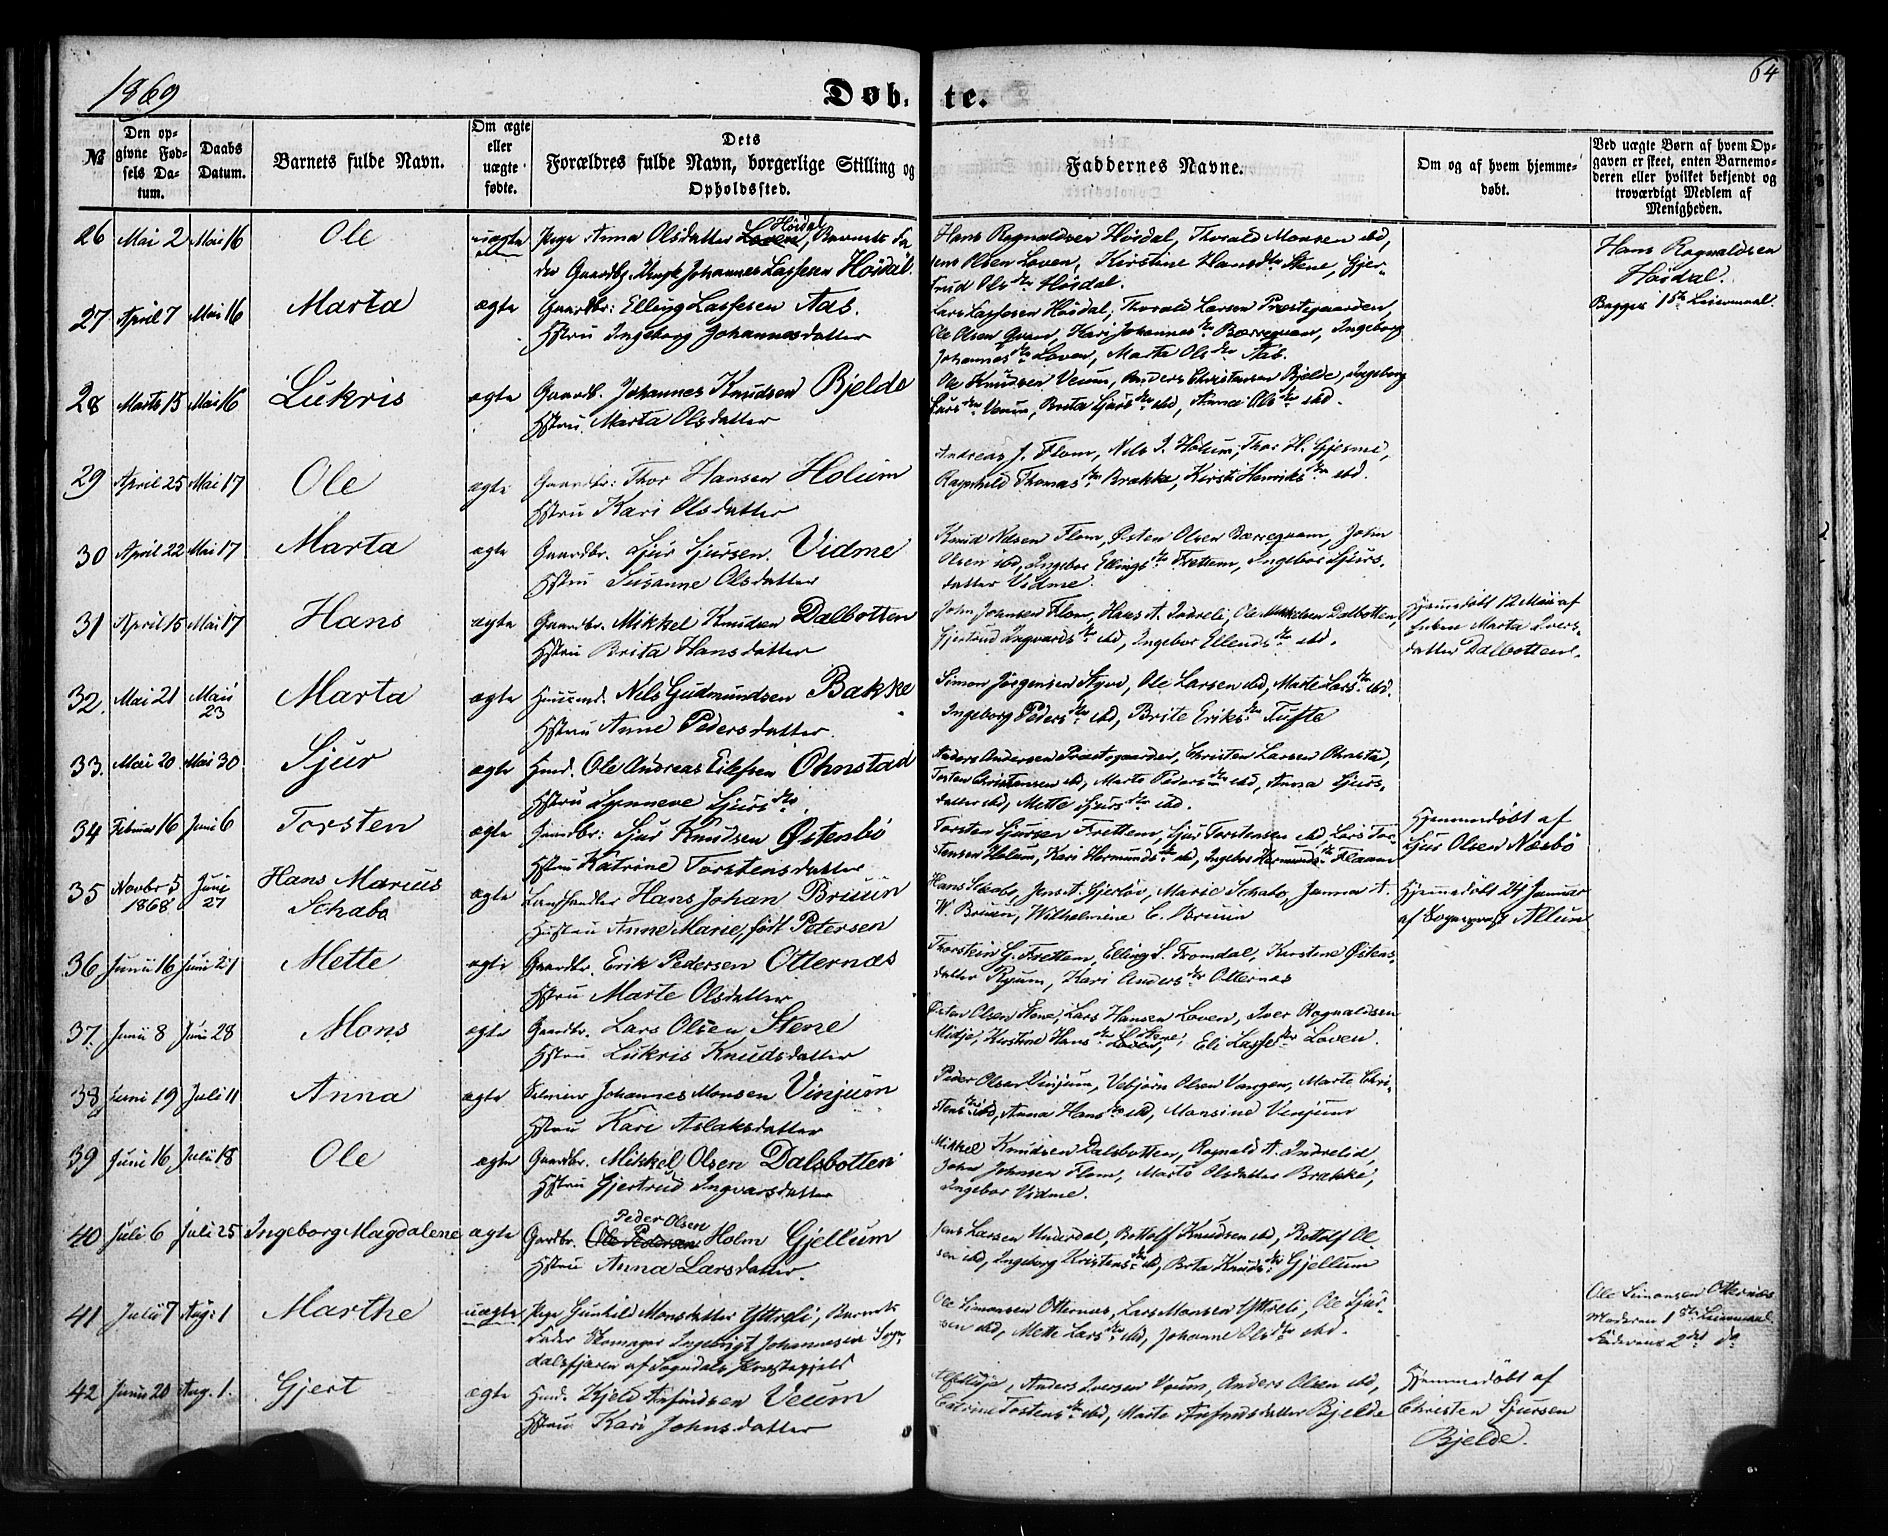 1869
Døb-
te.
64
No
Den opgivne Fødsels Datum.
Daabs Datum.
Barnets fulde Navn.
Om ægte eller uægte fødte.
Dets Forældres fulde Navn, borgerlige Stilling og Opholdssted.
Faddernes Navne.
Om og af hvem hjemmedøbt.
Ved uægte Børn af hvem Opgaven er skeet, enten Barnemoderen eller hvilket bekjendt og troværdigt Medlem af Menigheden.
26 Mai 2 Mai 16 Ole uægte Pige Anna Olsdatter Loven Høidal, Barnets Fa-
der Gaardbr. Johannes Lassesen Høidal.
Hans Ragnaldsen Høidal, Thorald Monsen ibd,
Jens Olsen Loven, Kirstine Hansdtr Stene, Gjer-
trud Olsdtr Høidal.
Hans Ragnaldsen
Høidal.
Begges 1ste Leiermaal.
27 April 7 Mai 16 Marta ægte Gaardbr: Elling Lassesen Aas.
Hstru Ingeborg Johannesdatter
Lars Lassesen Høidal, Thorald Larsen Prestegaarden,
Ole Olsen Qvam, Kari Johannesdtr Børreqvam, Ingeborg
Johannesdtr Loven, Marta Olsdtr Aas.
28 Marts 15 Mai 16 Lukris ægte Gaardb. Johannes Knudsen Bjelde
Hstru Marta Olsdatter
Ole Knudsen Veum, Anders Christensen Bjelde, Ingeborg
Larsdtr Veum, Brita Sjursdtr ibd, Anna Olsdtr ibd.
29 April 25 Mai 17 Ole ægte Gaardbr: Thor Hansen Holum
Hstru Kari Olsdatter
Andreas J. Flom, Nils I. Holum, Thor H. Gjesmi,
Ragnhild Thomasdtr Brække, Kirsti Henriksdtr ibd.
30 April 22 Mai 17 Marta ægte Gaardbr. Sjur Sjursen Vidme
Hstru Susanne Olsdatter
Knud Nilsen Flom, Østen Olsen Børreqvam, John
Olsen ibd, Ingebor Ellingsdtr Frettem, Ingebor Sjurs-
datter Vidme.
31 April 15 Mai 17 Hans ægte Gaardbr. Mikkel Knudsen Dalbotten
Hstru Brita Hansdatter
John Johnsen Flom, Hans A. Indreli, Ole Mikkelsen Dalbotten,
Gjertrud Ingvardsdtr ibd, Ingebor Ellendsdtr ibd.
Hjemmedøbt 12 Mai af
Enken Marta Ivers-
datter Dalbotten.
32. Mai 21 Mai 23 Marta ægte Huusmd. Nils Gudmundsen Bakke
Hstru Anne Pedersdatter
Simon Jørgensen Styve, Ole Larsen ibd, Marte Larsdtr ibd.
Ingeborg Pedersdtr ibd, Brite Eriksdtr Tufte
33. Mai 20 Mai 30 Sjur ægte Hmd. Ole Andreas Ohnstad
Hstru Synneve Sjursdtr.
Anders Andersen Præstegaarden, Christen Larsen Ohnstad,
Torsten Christensen ibd, Marte Pedersdtr ibd, Anna Sjurs-
datter ibd, Mette Sjursdtr ibd.
34 Februar 16 Juni 6 Torsten ægte Gaardbr: Sjur Knudsen Østenbø
Hstru Katrine Torstensdatter
Torsten Gursen Frettem, Sjur Torstensen ibd, Lars Tor-
stensen Holum, Kari Hermundsdtr ibd, Ingebor Hermundsdtr Flaam
Hjemmedøbt af
Sjur Olsen Næsbø
35 Novbr 5 1868 Juni 27 Hans Marius Schabo ægte Landhandler Hans Johan Bruun
Hustru Anne Marie, født Petersen
Hans Schabo, Jens A. Gjerløv, Marie Schabo, Janna A.
W. Bruun, Wilhelmine C. Bruun
Hjemmedøbt 24 Januar
af Sogneprest Allum
36. Junii 16 Juni 21 Mette ægte Gaardbr. Erik Pedersen Otternæs
Hstru Marte Olsdatter
Thorstein G. Frettem, Elling S. Fromdal, Kirstine Østens-
datter Ryum, Kari Andersdtr Otternæs
37. Junii 8 Juni 28 Mons ægte Gaardbr. Lars Olsen Stene
Hstru Lukris Knudsdatter
Østen Olsen Stene, Lars Hansen Loven, Iver Ragnaldsen
Midje, Kirstine Hansdtr Loven Stene, Eli Lassesdtr Loven.
38. Juni 19 Juli 11 Anna ægte Johannes Monsen Vinjum
Hstru Kari Aslaksdatter
Peder Olsen Vinjum, Vebjørn Olsen Vangen, Marte Chri-
stensdtr ibd, Anna Hansdtr ibd, Monsine Vinjum
39 Juni 16 Julii 18 Ole ægte Gaardbr. Mikkel Olsen Dalsbotten
Hstru Gjertrud Ingvarsdatter
Mikkel Knudsen Dalsbotten, Ragnald A. Indrelid,
John Johnsen Flom, Marta Olsdatter Brække,
Ingebor Vidme.
40 Juli 6 Juli 25 Ingeborg Magdalene ægte Gardbr. Ole Pedersen Peder Olsen Holm Gjellum
Hstru Anna Larsdatter.
Jens Larsen Underdal, Bottolf Knudsen ibd, Bottolf Ol-
sen ibd, Ingeborg Kristensdtr ibd, Brta Knudsdtr Gjellum
41 Julii 7 Aug: 1 Marthe uægte Pige Gunhild Monsdatter Yttreli, Barnets
Fader Skomager Ingebrigt Johannesen Sogn-
dalsfjæren af Sogndals Prestegjeld
Ole Simonsen Otternæs, Lars Monsen Yttreli, Ole Sjur-
sen ibd, Mette Larsdtr ibd, Johanne Olsdtr ibd.
Ole Simonsen Otternæs
Moderens 1ste Leiermaal
Faderens 2det do
42 Junii 20 Aug. 1. Gjert ægte Hmd. Kjeld Anfindsen Veum
Hstru Kari Johnsdatter
Anders Iversen Veum, Anders Olsen ibd,
Catrine Torstensdtr ibd, Marte Anfindsdatter Bjelde
Hjemmedøbt af
Christen Sjursen
Bjelde.